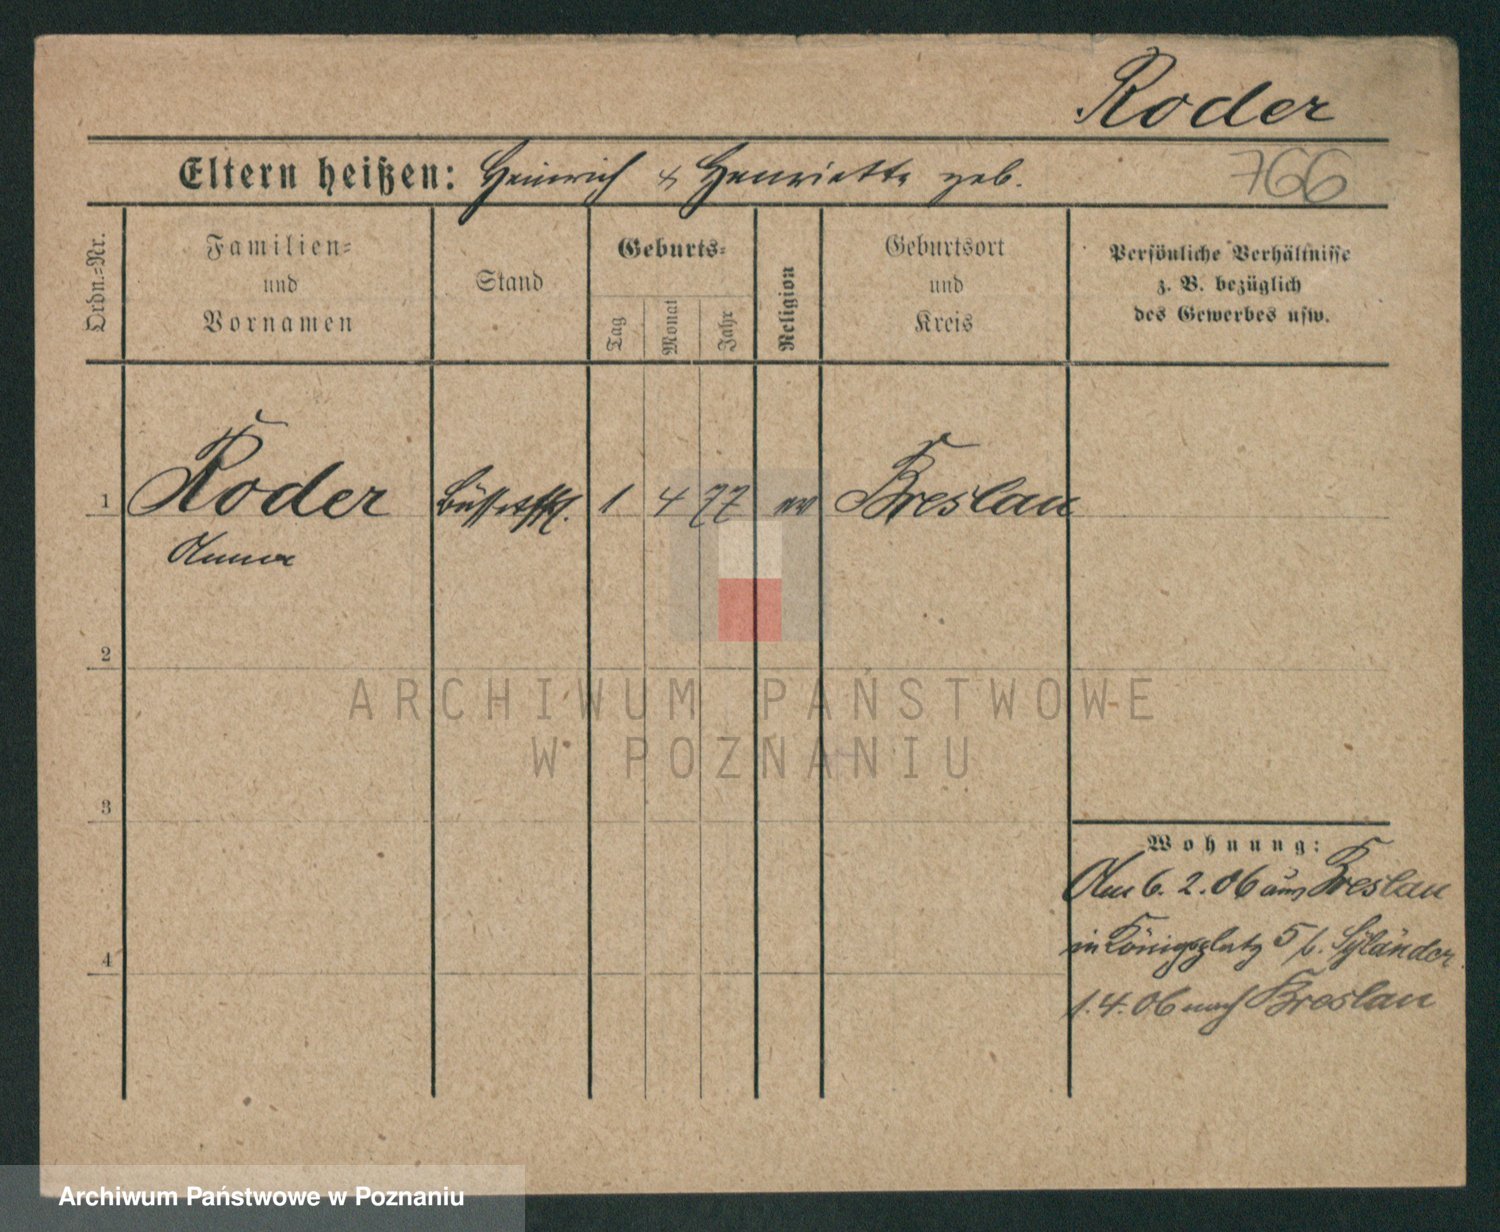 Roder
Eltern heißen: Heinrich & Henriette geb.
766
Ordn.=Nr.
Familien=
und
Vornamen
Stand
Geburts=
Tag
Monat
Jahr
Religion
Geburtsort
und
Kreis
Persönliche Verhältnisse
z. B. bezüglich
des Gewerbes usw.
1 Roder 1 4 77 ev Breslau
Anna
2
3
4
Wohnung:
Am 6. 2. 06 aus Breslau
in Königsplatz 5 b.
1. 4. 06 nach Breslau
ARCHIWUM PAŃSTWOWE
W POZNANIU
Archiwum Państwowe w Poznaniu